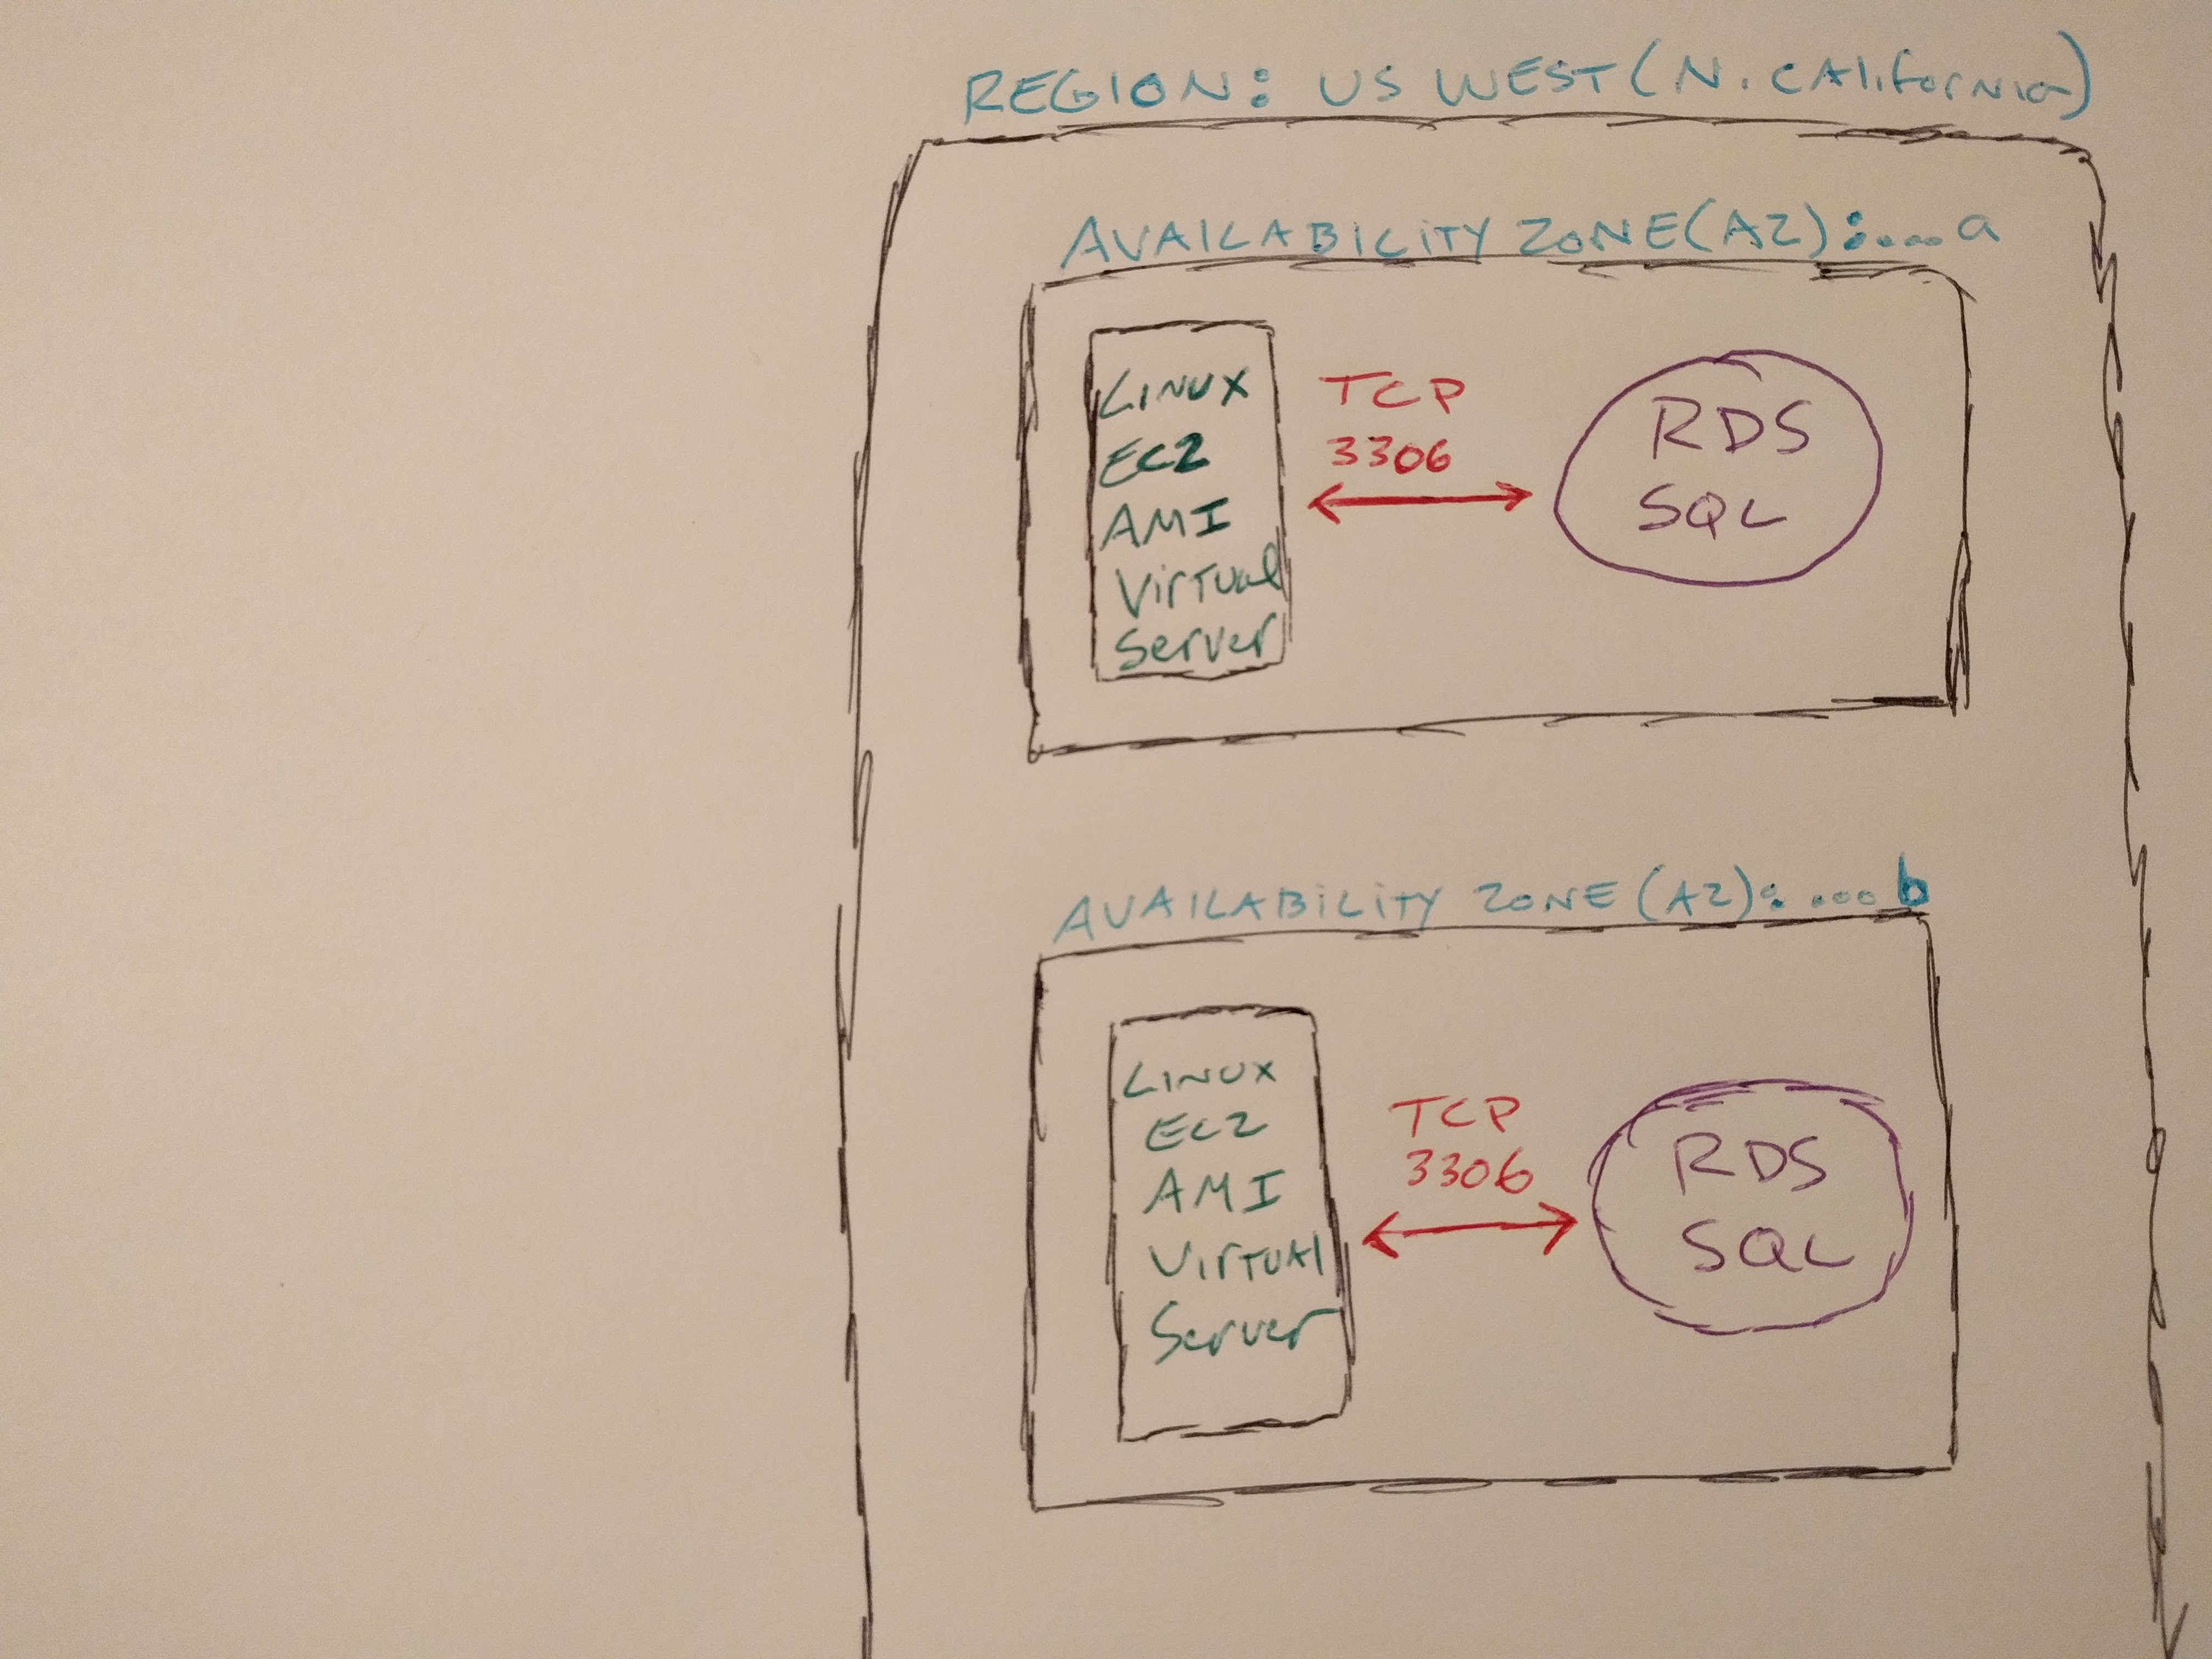 REGION: US WEST (N. CALiforNia)
AVAILABILITY ZONE (AZ):....a
LINUX
EC2
AMI
Virtual
Server
TCP
3306
RDS
SQL
AVAILABILITY ZONE (AZ): ....b
LINUX
EC2
AMI
VirTUAl
Server
TCP
3306
RDS
SQL